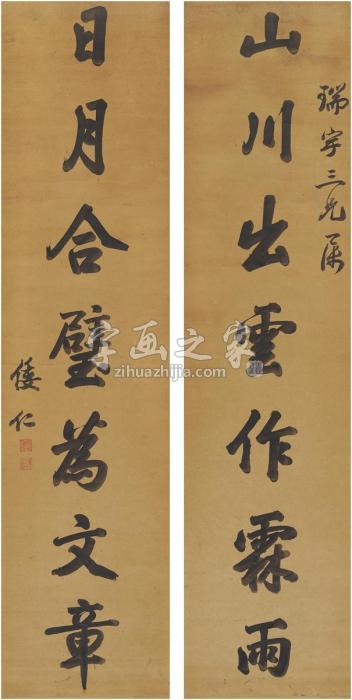 瑞宇三兄屬
山川出雲作霖雨
日月合璧為文章
倭仁
字画之家
zihuazhijia.com